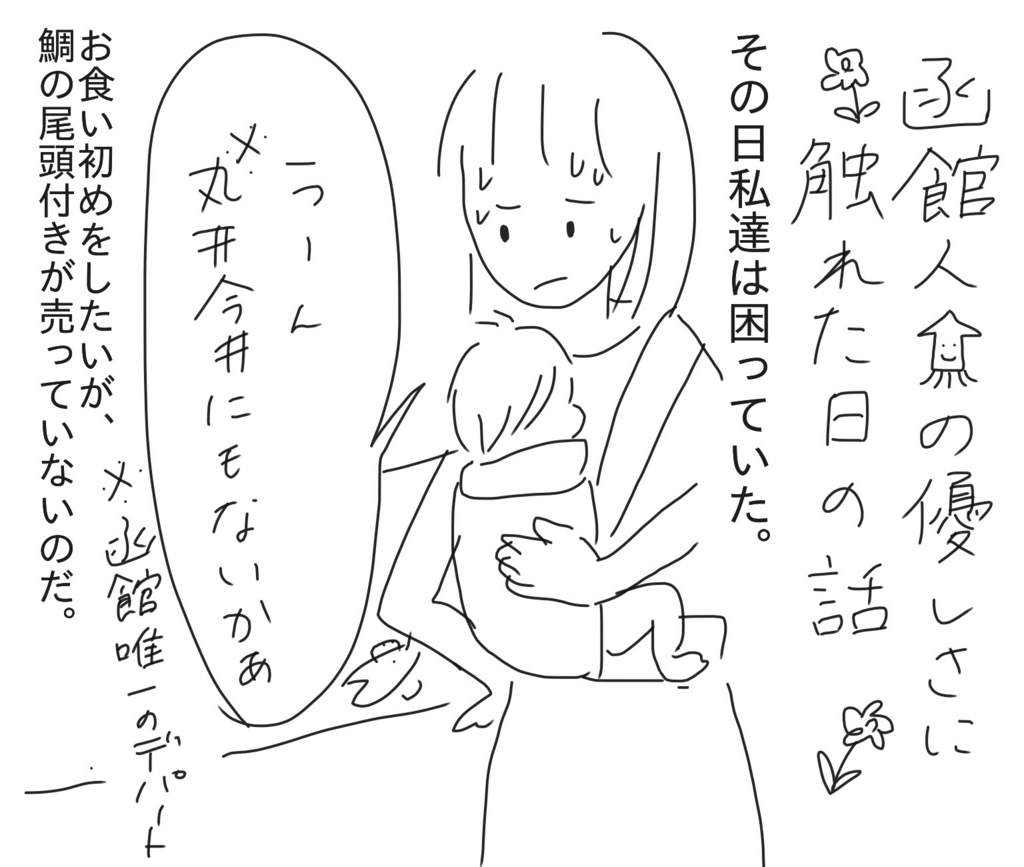 函館人の優しさに
触れた日の話
その日私達は困っていた。
うーん
※丸井今井にもないかぁ
お食い初めをしたいが、
鯛の尾頭付きが売っていないのだ。
※函館唯一のデパート